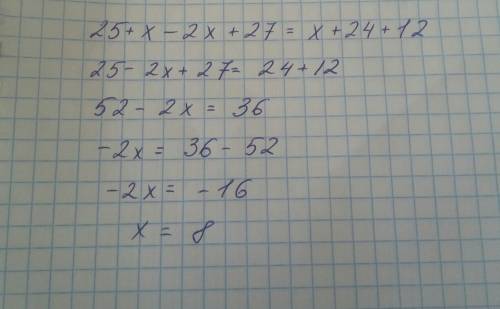 25+x-2x+27=x+24+12
25-2x+27=24+12
52-2x=36
-2x=36-52
-2x=-16
x=8